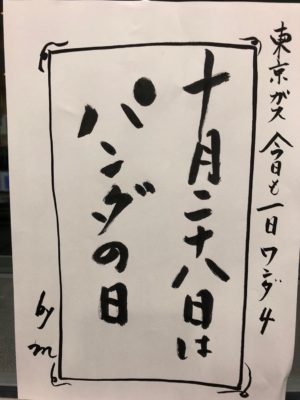 東京ガス 今日も一日ワンダ4
十月二十八日は
パンダの日
by m